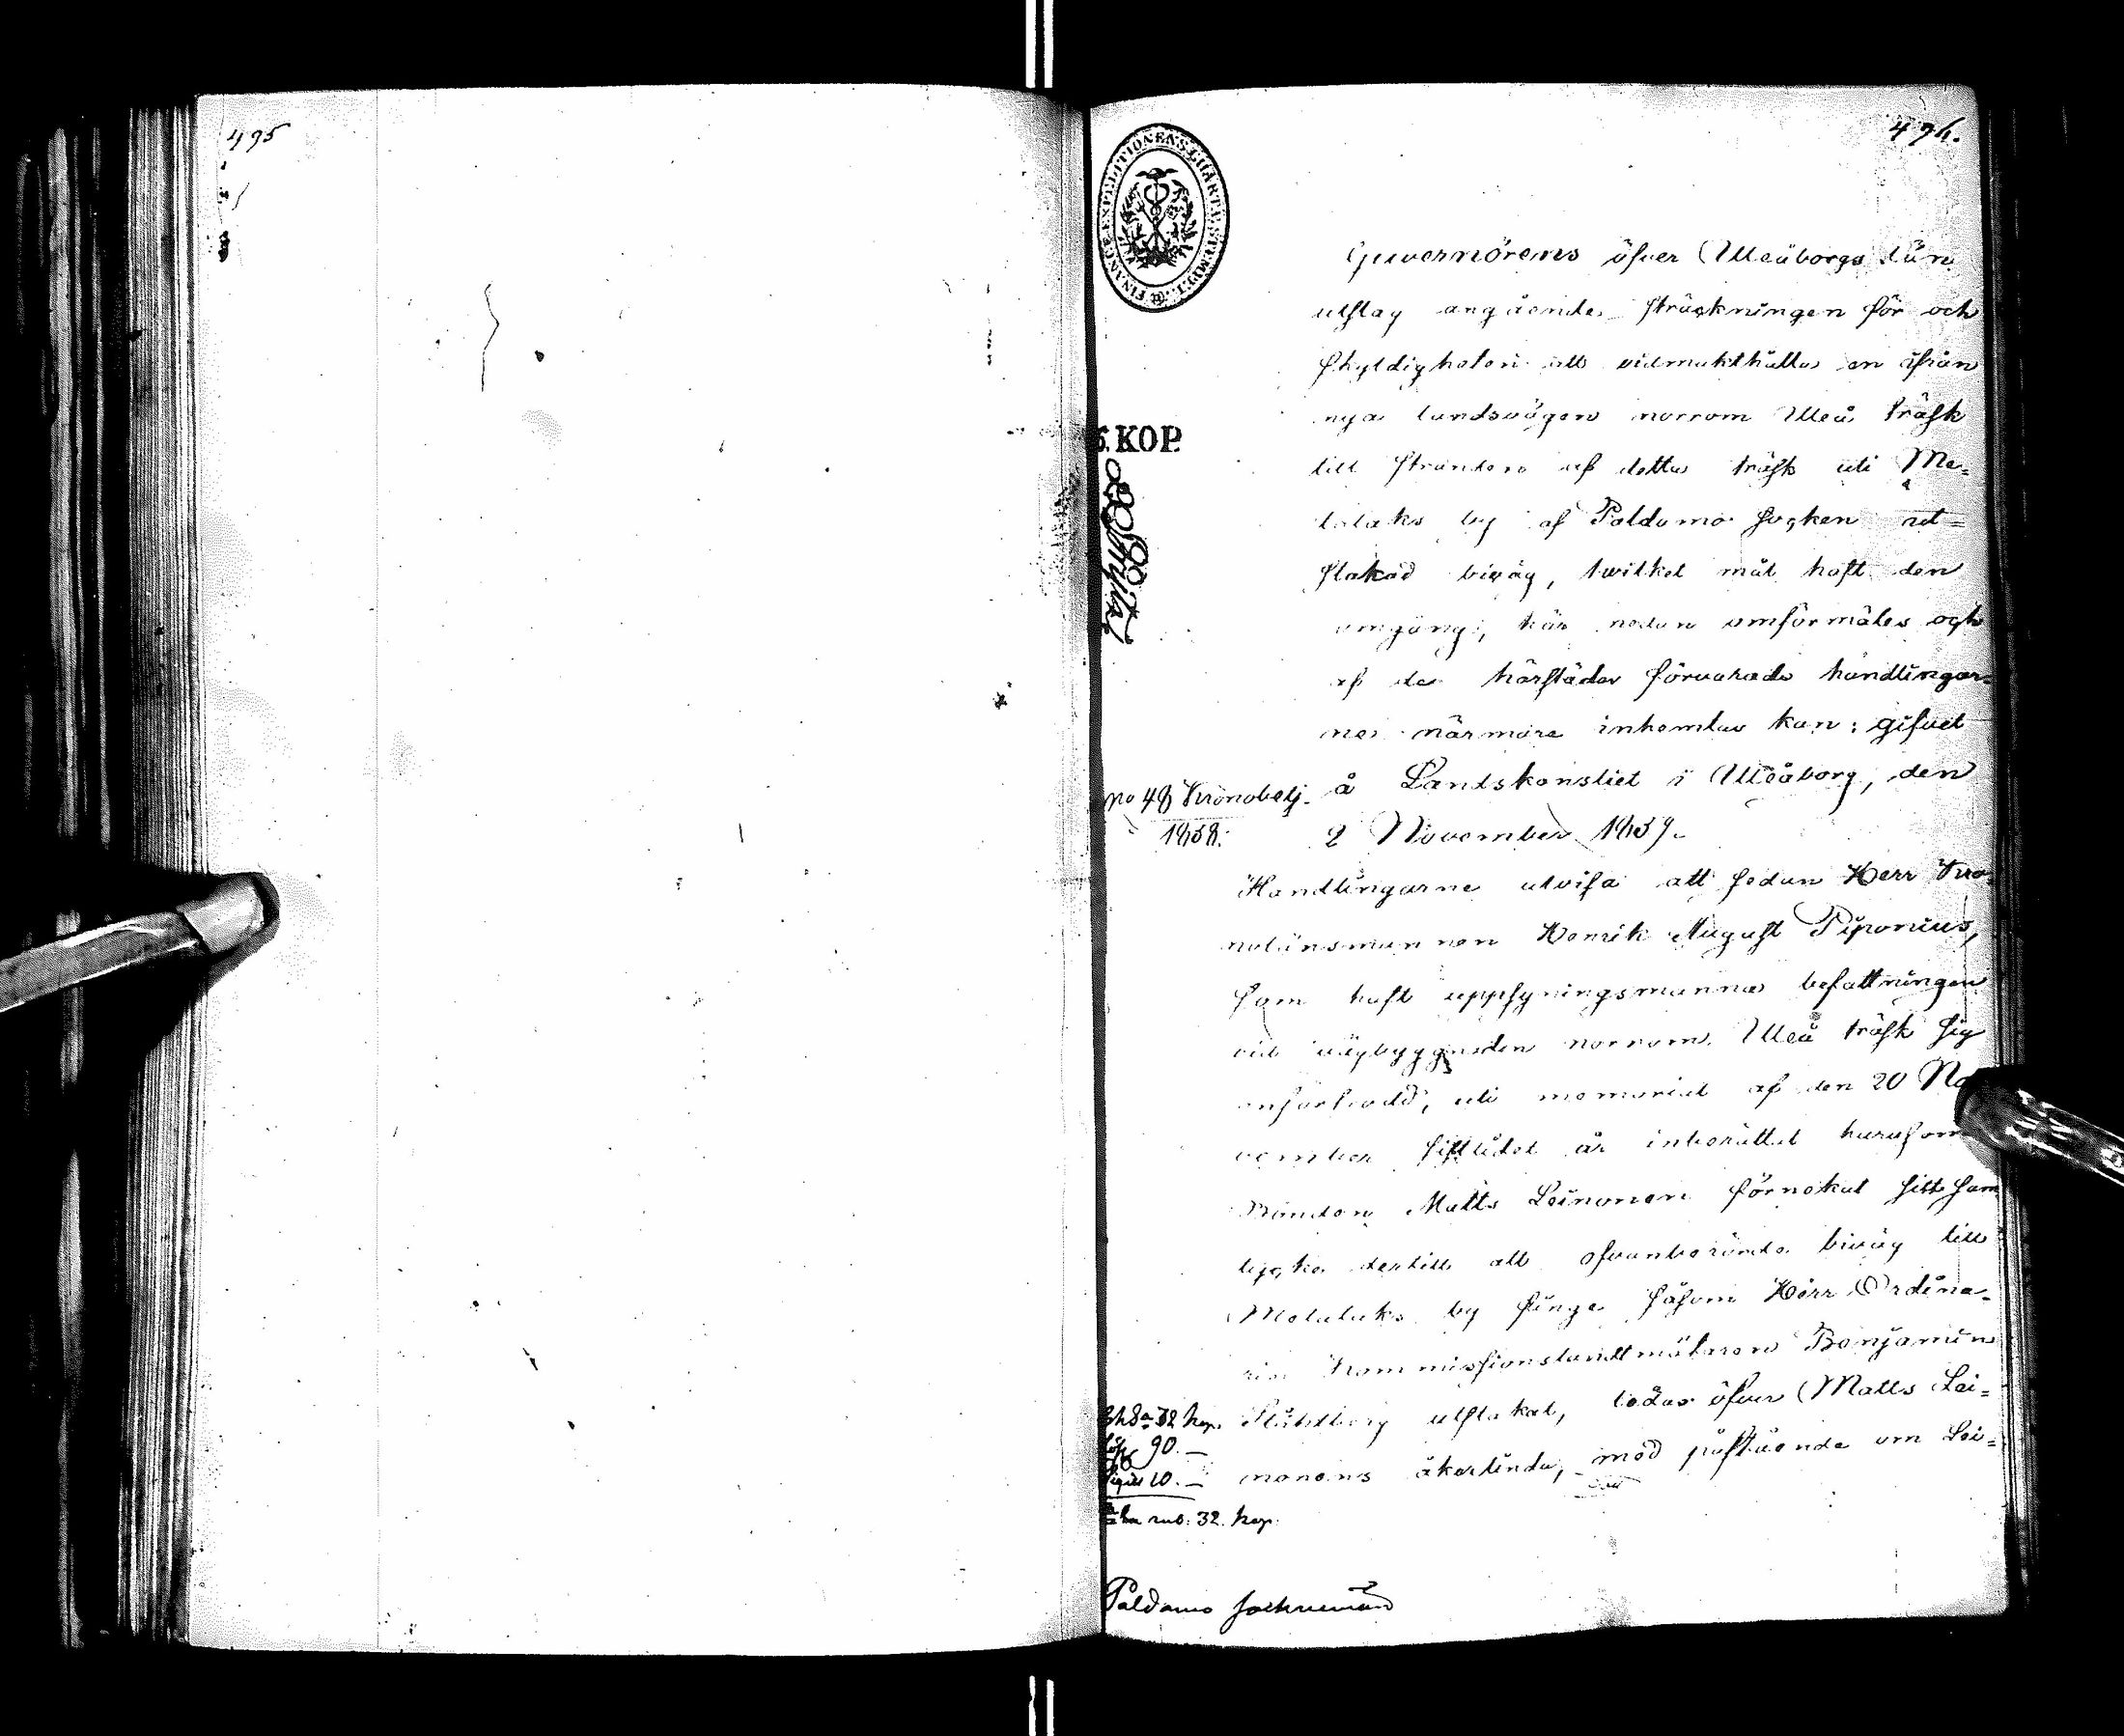 495
496.
FINANCE EXPEDITIONENS CHARTÆ STEMPEL
Guvernörens öfver Uleåborgs Län
utslag angående sträckningen för och
skyldigheten att vidmakthålla en ifrån
nya landsvägen norrom Uleå träsk
KOP.
till stranden af detta träsk uti Me-
lalaks by af Paldamo socken ut-
stakad biväg, hvilket mål haft den
omgång, här nedan omförmäles och
af de härstädes förvarade handlingar-
ne närmare inhemtas kan: gifvet
å Landskansliet i Uleåborg, den
No 48 Kronobetj.
1838.
2 November 1839.
Handlingarne utvisa att sedan Herr Kro-
nolänsmannen Henrik August Piponius,
som haft uppsyningsmanna befattningen
vid vägbyggnaden norrom Uleå träsk sig
anförtrodd, uti memorial af den 20 No-
vember sistlidet år inberättat hurusom
Bonden Matts Leinonen förnekat sitt sam
tycke dertill att ofvanberörde biväg till
Melalaks by finge såsom Herr Ordina-
rie Kommissionslandtmätaren Benjamin
Ståhlberg utstakat, ledas öfver Matts Lei-
nonens åkerlinda, med påstående om Lei-
32 kop.
90. —
10. —
rub: 32. kop.
Paldamo sockneman